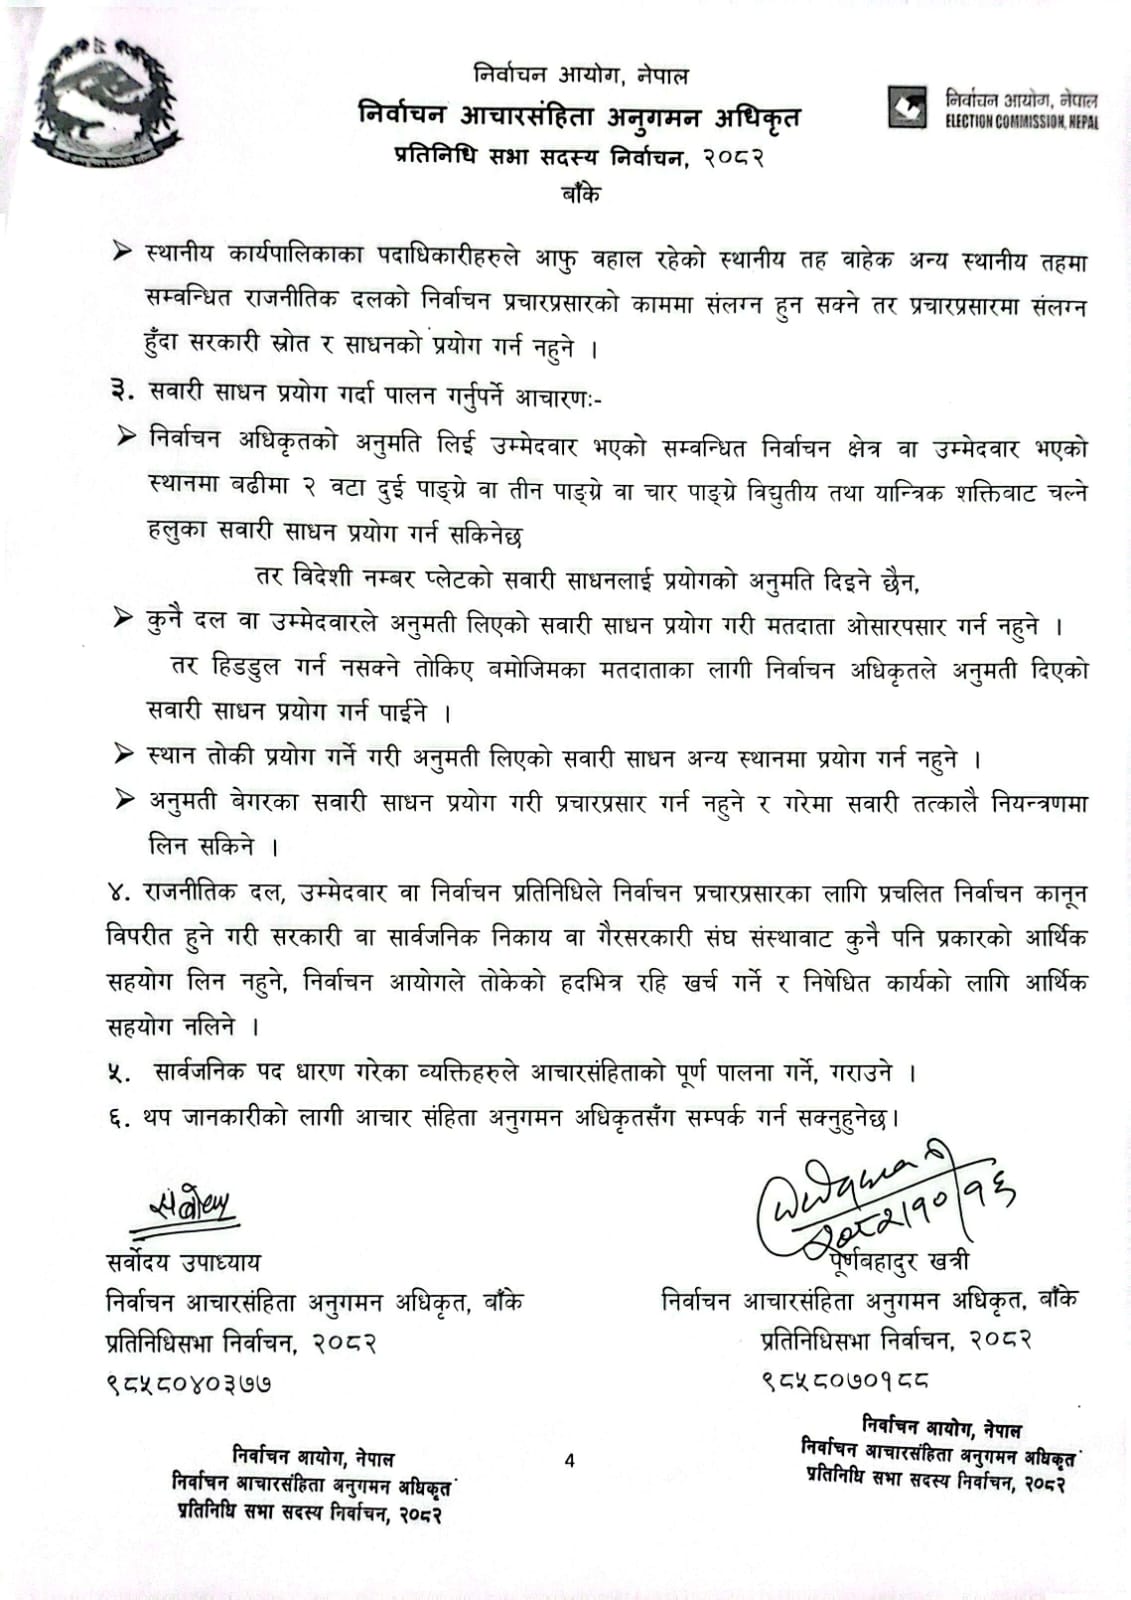 निर्वाचन आयोग, नेपाल
निर्वाचन आचारसंहिता अनुगमन अधिकृत
प्रतिनिधि सभा सदस्य निर्वाचन, २०८२
बाँके
निर्वाचन आयोग, नेपाल
ELECTION COMMISSION, NEPAL
➢ स्थानीय कार्यपालिकाका पदाधिकारीहरुले आफु वहाल रहेको स्थानीय तह वाहेक अन्य स्थानीय तहमा
सम्वन्धित राजनीतिक दलको निर्वाचन प्रचारप्रसारको काममा संलग्न हुन सक्ने तर प्रचारप्रसारमा संलग्न
हुँदा सरकारी स्रोत र साधनको प्रयोग गर्न नहुने ।
३. सवारी साधन प्रयोग गर्दा पालन गर्नुपर्ने आचारणः-
➢ निर्वाचन अधिकृतको अनुमति लिई उम्मेदवार भएको सम्वन्धित निर्वाचन क्षेत्र वा उम्मेदवार भएको
स्थानमा बढीमा २ वटा दुई पाङ्ग्रे वा तीन पाङ्ग्रे वा चार पाङ्ग्रे विद्युतीय तथा यान्त्रिक शक्तिवाट चल्ने
हलुका सवारी साधन प्रयोग गर्न सकिनेछ
तर विदेशी नम्बर प्लेटको सवारी साधनलाई प्रयोगको अनुमति दिइने छैन,
➢ कुनै दल वा उम्मेदवारले अनुमती लिएको सवारी साधन प्रयोग गरी मतदाता ओसारपसार गर्न नहुने ।
तर हिडडुल गर्न नसक्ने तोकिए बमोजिमका मतदाताका लागी निर्वाचन अधिकृतले अनुमती दिएको
सवारी साधन प्रयोग गर्न पाईने ।
➢ स्थान तोकी प्रयोग गर्ने गरी अनुमती लिएको सवारी साधन अन्य स्थानमा प्रयोग गर्न नहुने ।
➢ अनुमती बेगरका सवारी साधन प्रयोग गरी प्रचारप्रसार गर्न नहुने र गरेमा सवारी तत्कालै नियन्त्रणमा
लिन सकिने ।
४. राजनीतिक दल, उम्मेदवार वा निर्वाचन प्रतिनिधिले निर्वाचन प्रचारप्रसारका लागि प्रचलित निर्वाचन कानून
विपरीत हुने गरी सरकारी वा सार्वजनिक निकाय वा गैरसरकारी संघ संस्थावाट कुनै पनि प्रकारको आर्थिक
सहयोग लिन नहुने, निर्वाचन आयोगले तोकेको हदभित्र रहि खर्च गर्ने र निषेधित कार्यको लागि आर्थिक
सहयोग नलिने ।
५. सार्वजनिक पद धारण गरेका व्यक्तिहरुले आचारसंहिताको पूर्ण पालना गर्ने, गराउने ।
६. थप जानकारीको लागी आचार संहिता अनुगमन अधिकृतसँग सम्पर्क गर्न सक्नुहुनेछ।
सर्वोदय
२०८२।१०।१६
सर्वोदय उपाध्याय
निर्वाचन आचारसंहिता अनुगमन अधिकृत, बाँके
प्रतिनिधिसभा निर्वाचन, २०८२
९८५८०४०३७७
पूर्णबहादुर खत्री
निर्वाचन आचारसंहिता अनुगमन अधिकृत, बाँके
प्रतिनिधिसभा निर्वाचन, २०८२
९८५८०७०१८८
निर्वाचन आयोग, नेपाल
निर्वाचन आचारसंहिता अनुगमन अधिकृत
प्रतिनिधि सभा सदस्य निर्वाचन, २०८२
4
निर्वाचन आयोग, नेपाल
निर्वाचन आचारसंहिता अनुगमन अधिकृत
प्रतिनिधि सभा सदस्य निर्वाचन, २०८२